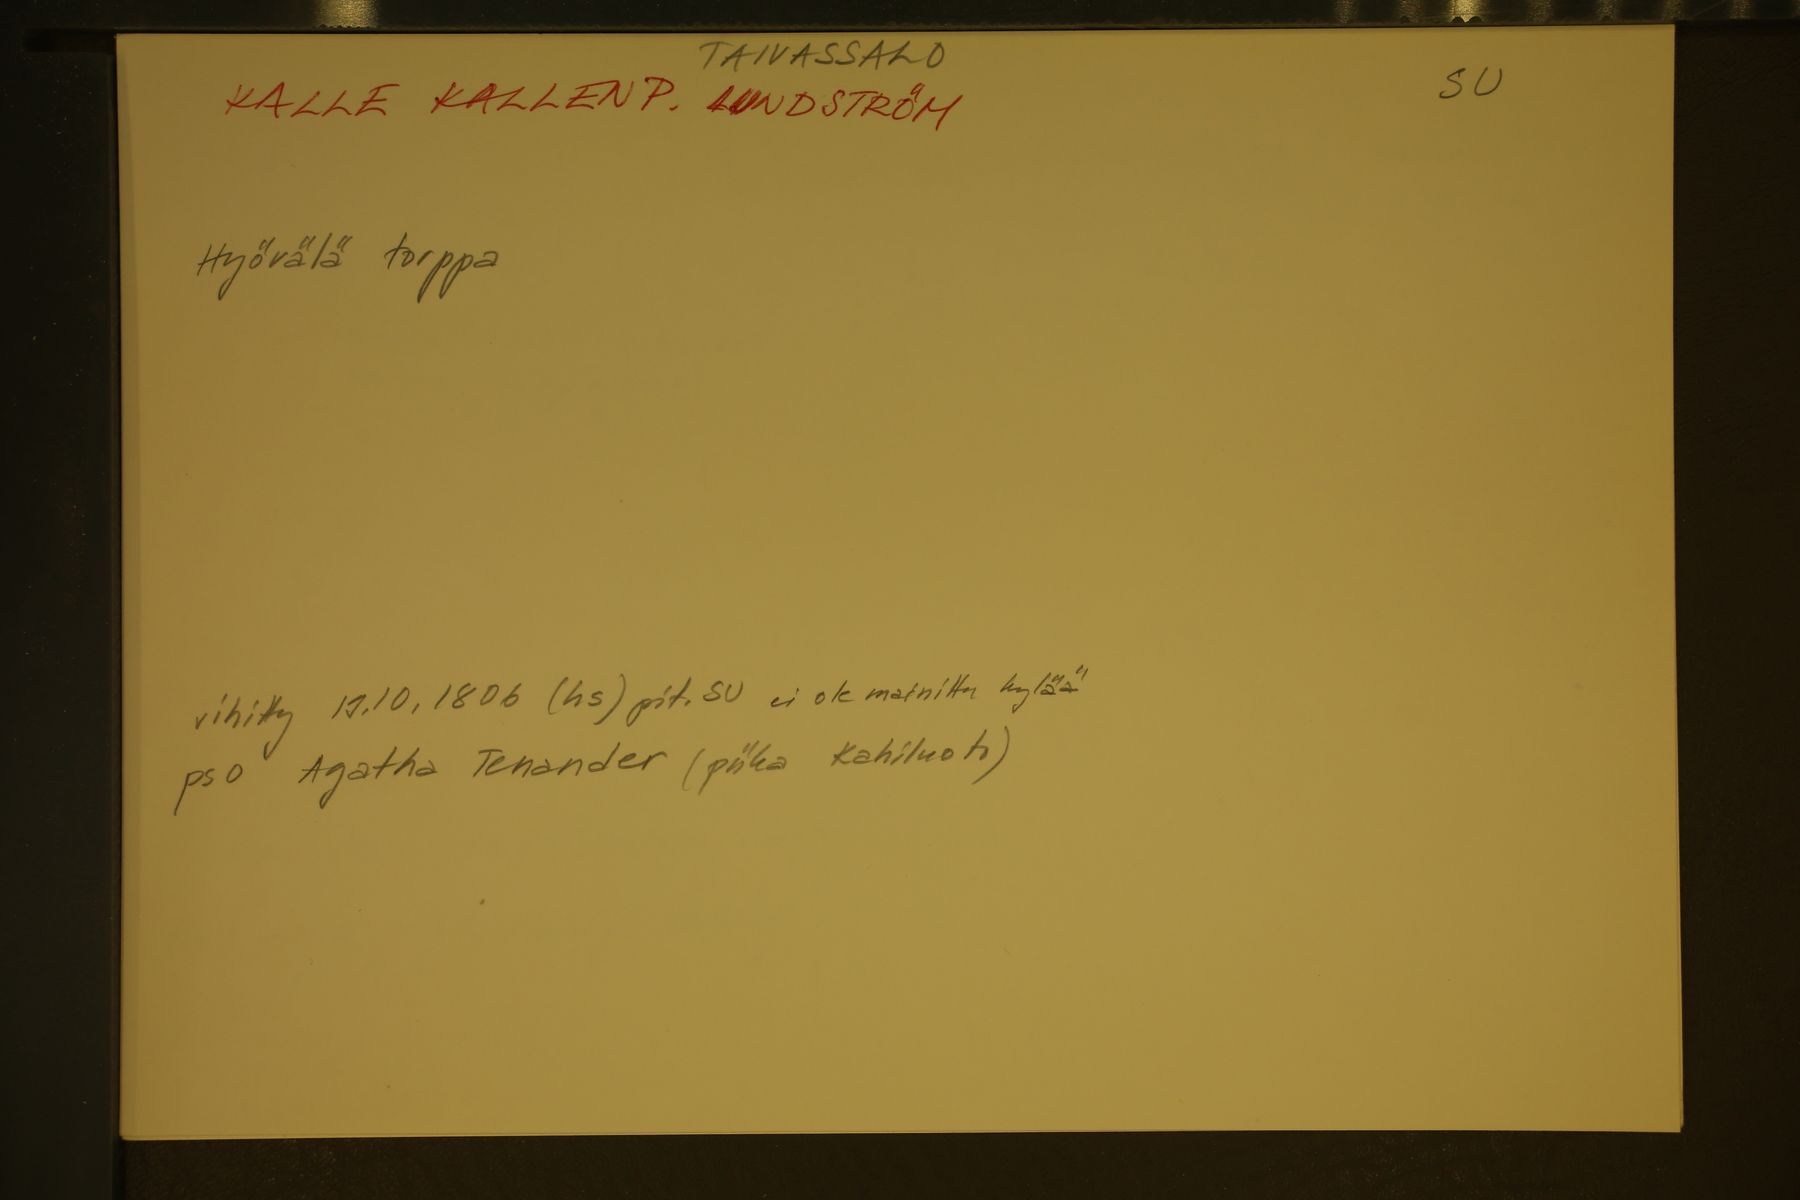 TAIVASSALO
SU
KALLE KALLENP. LUNDSTRÖM
Hyövälä torppa
vihitty 19.10.1806 (hs) pit. SU ei ole mainittu kylää
pso Agatha Tenander (piika Kahiluoto)